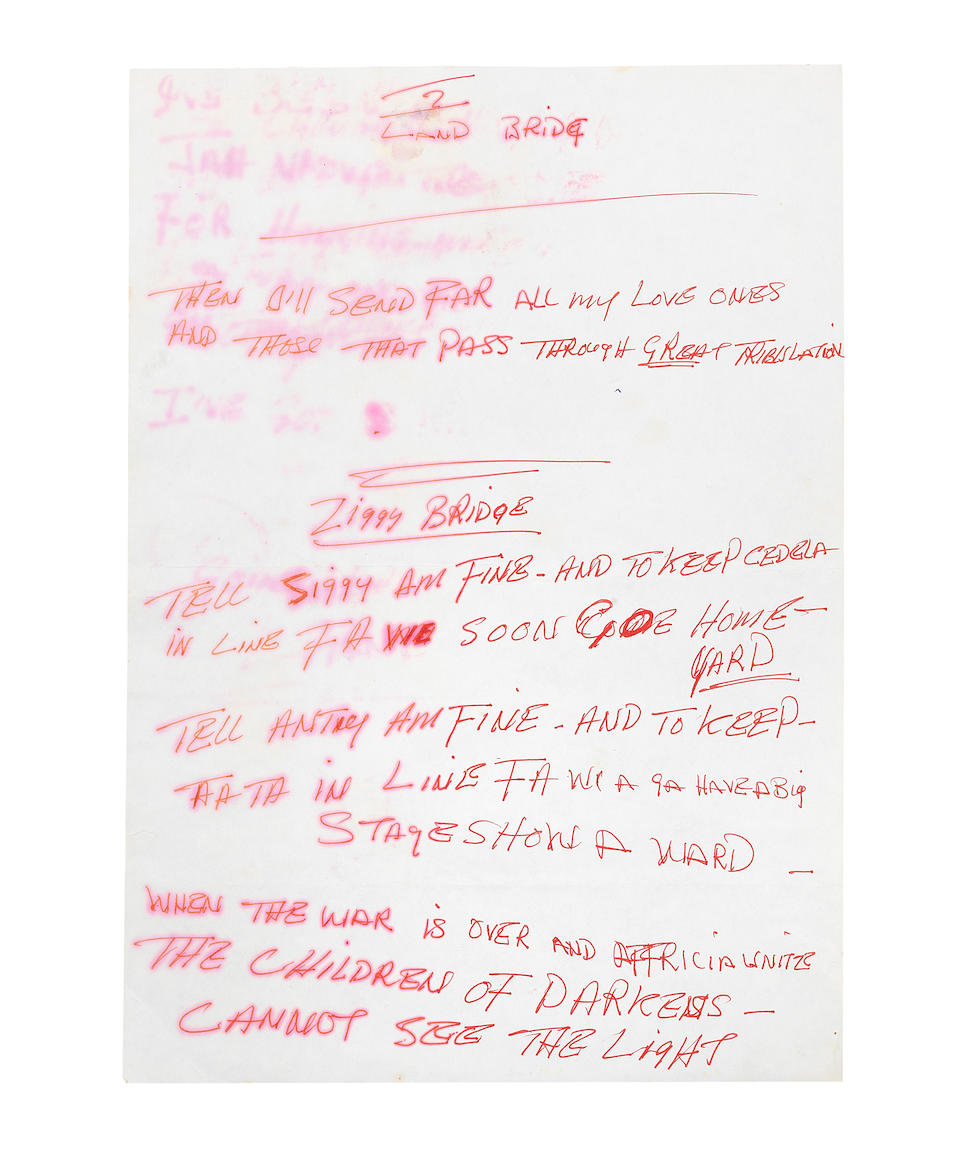 2
LAND BRIDG
JAH
FOR
THEN I'll SEND FAR ALL my LOVE ONES
AND THOSE THAT PASS THROUGH GREAT TRIBLATION
I'VE GOT
Ziggy BRIDGE
TELL Siggy AM FINE - AND TO KEEP CEDELA
iN LINE FA WE SOON COME HOME -
YARD
TELL ANTNY AM FINE - AND TO KEEP -
TATA iN LINE FA Wi A gA HAVE A Big
STAgE SHOW A YARD -
WHEN THE WAR iS OVER AND AFFRICIA UNITE
THE CHILDREN OF DARKENS -
CANNOT SEE THE LigHT